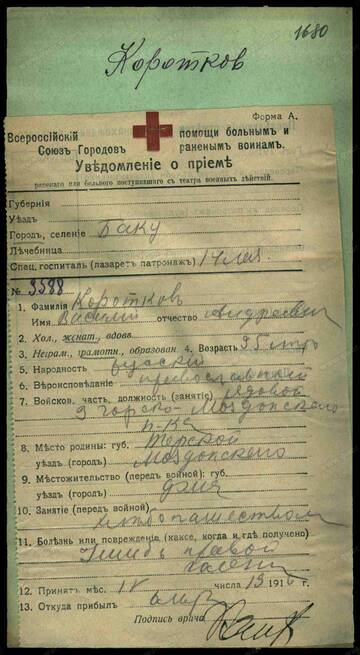 1680
Коротков
Форма А.
Всероссійскій помощи больнымъ и
Союзъ Городовъ раненымъ воинамъ.
Увѣдомленіе о пріемѣ
раненаго или больного поступившаго съ театра военныхъ дѣйствій.
Губернія
Уѣздъ
Городъ, селеніе Баку
Лѣчебница
Спец. госпиталь (лазаретъ патронажъ) 14 лаз.
№ 3588
1. Фамилія Коротковъ
Имя Василий отчество Андреевич
2. Хол., женат., вдовъ.
3. Неграм., грамотн., образован. 4. Возрастъ 35 
5. Народность русский
6. Вѣроисповѣданіе православный
7. Войсков. часть, должность (занятіе) рядовой
3 горско-Моздокского
п-ка
8. Мѣсто родины: губ. Терской
уѣздъ (городъ) Моздокского
9. Мѣстожительство (передъ войной): губ.
уѣздъ (городъ) дома
10. Занятіе (передъ войной)
хлебопашеством
11. Болѣзнь или поврежденіе (какое, когда и гдѣ получено)
Ушибъ правой
голени
12. Принятъ мѣс. IV числа 13 1916 г.
13. Откуда прибылъ
Подпись врача